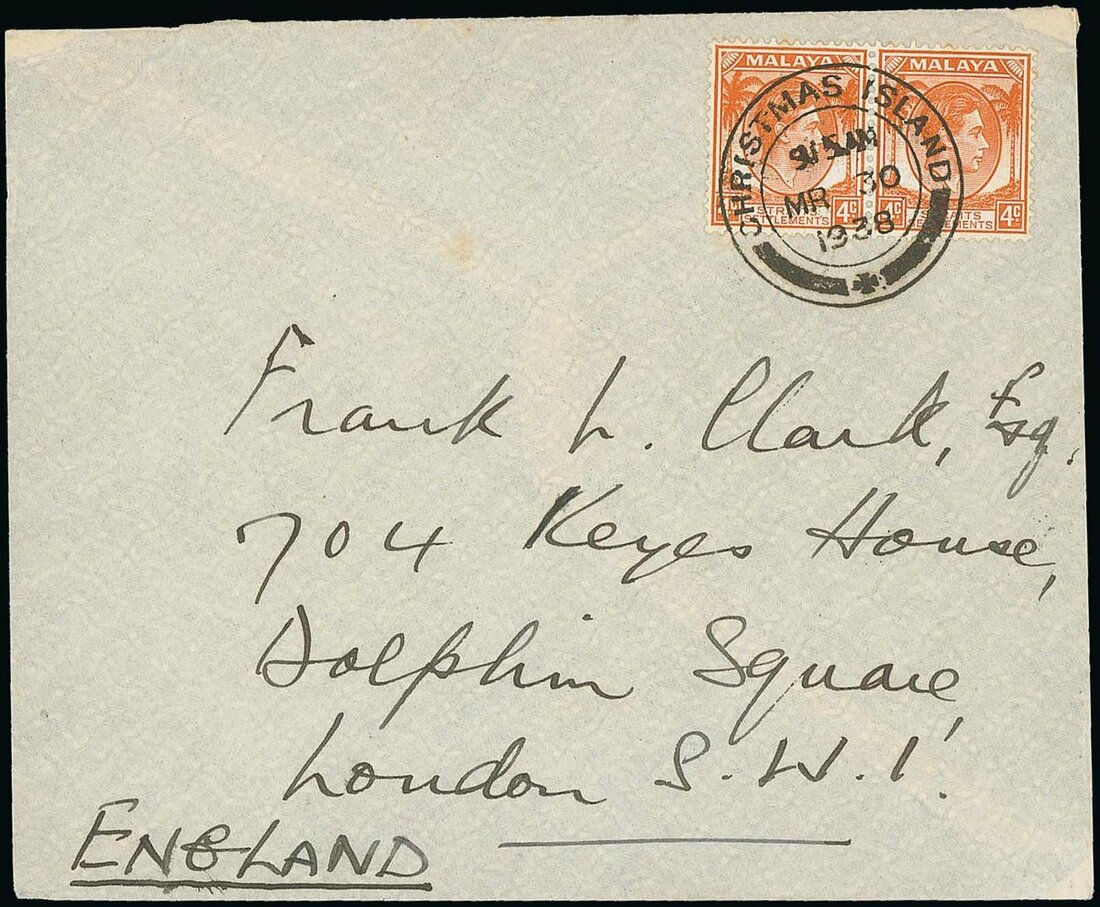 MALAYA MALAYA
CHRISTMAS ISLAND
MR 30
1938
4c 4c 4c
SETTLEMENTS SETTLEMENTS
Frank L. Clark, Esq.
704 Keyes House,
Dolphin Square,
London S.W.1.
ENGLAND